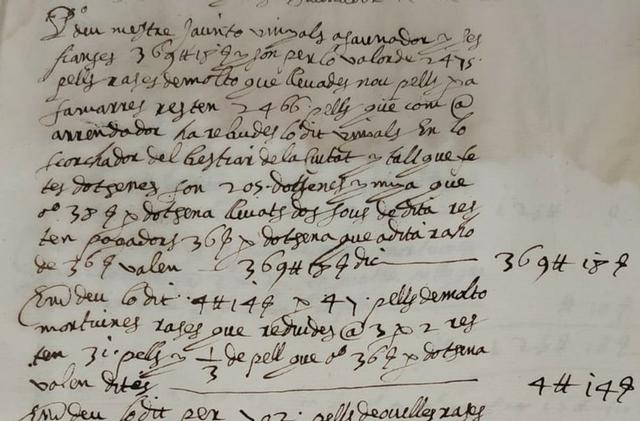 P.º deu mestre Jacinto vinyals assaunador y ses
fianses 369 ℔ 18 ß y son per lo valor de 2475·
pells rases de molto que llevades nou pells pª
famarres resten 2466· pells que com @
arrendador ha rebudes lo dit vinyals En lo
scorchador del bestiar de la Ciutat y tall que fe
tes dotsenes son 205· dotsenes y mija que
ª 38 ß p dotsena llevats dos sous de dita res
ten pagadors 36 ß p dotsena que a dita raho
de 36 ß valen 369 ℔ 18 ß dic 369 ℔ 18 ß
Em deu lo dit 4 ℔ 14 ß p 47· pells de molto
mortuines rases que reduides @ 3 p 2 res
ten 31· pells y 1/3 de pell que ª 36 ß p dotsena
valen dites 4 ℔ 14 ß
Em deu lo dit per pells de ovelles rases